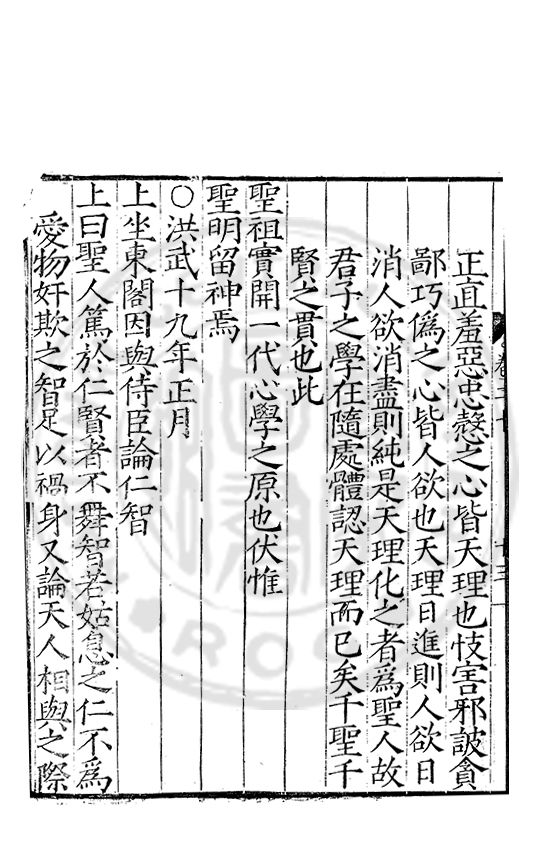 正直羞惡忠愨之心皆天理也忮害邪詖貪
鄙巧偽之心皆人欲也天理日進則人欲日
消人欲消盡則純是天理化之者為聖人故
君子之學在隨處體認天理而已矣千聖千
賢之貫也此
聖祖實開一代心學之原也伏惟
聖明留神焉
○洪武十九年正月
上坐東閣因與侍臣論仁智
上曰聖人篤於仁賢者不舞智若姑息之仁不為
愛物奸欺之智足以禍身又論天人相與之際